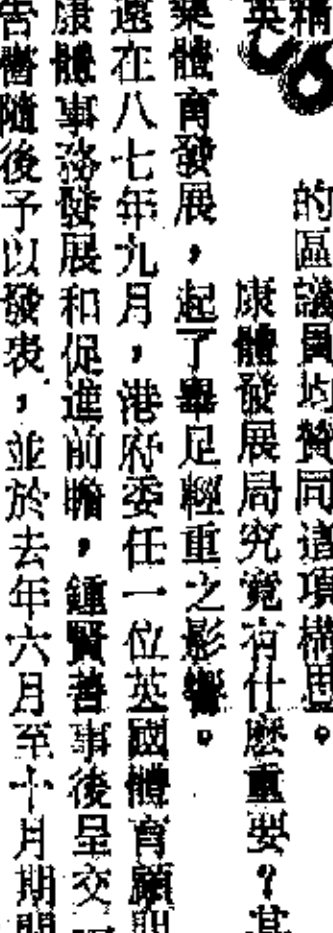 的區議員均贊同這項構思。
康體發展局究竟有什麼重要？其
業體育發展，起了舉足輕重之影響。
遠在八七年九月，港府委任一位英國體育顧問
康體事務發展和促進前瞻，鍾賢善事後呈交
告書隨後予以發表，並於去年六月至十月期間